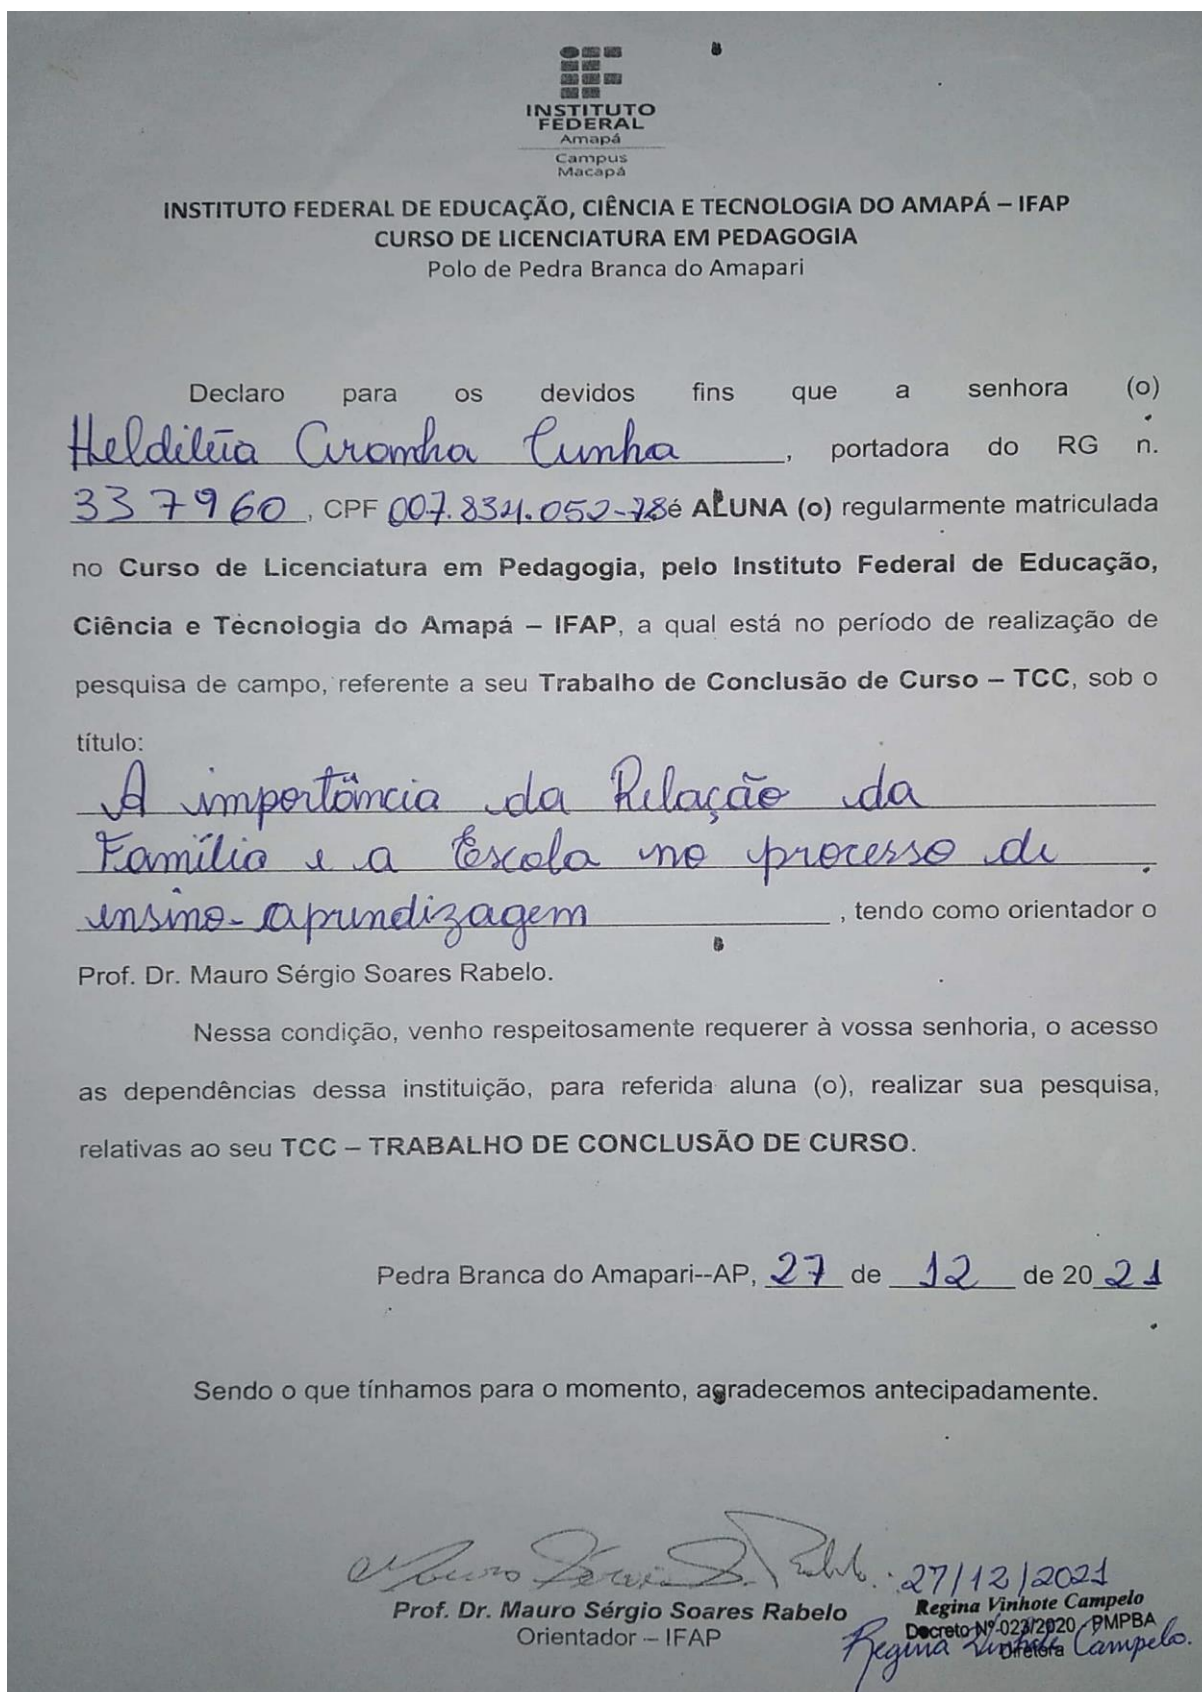 INSTITUTO
FEDERAL
Amapá
Campus
Macapá
INSTITUTO FEDERAL DE EDUCAÇÃO, CIÊNCIA E TECNOLOGIA DO AMAPÁ – IFAP
CURSO DE LICENCIATURA EM PEDAGOGIA
Polo de Pedra Branca do Amapari
Declaro para os devidos fins que a senhora (o)
Cunha, portadora do RG n.
337960, CPF é ALUNA (o) regularmente matriculada
no Curso de Licenciatura em Pedagogia, pelo Instituto Federal de Educação,
Ciência e Tecnologia do Amapá – IFAP, a qual está no período de realização de
pesquisa de campo, referente a seu Trabalho de Conclusão de Curso – TCC, sob o
título:
A importância da Relação da
Família e a Escola no processo de
ensino-aprendizagem, tendo como orientador o
Prof. Dr. Mauro Sérgio Soares Rabelo.
Nessa condição, venho respeitosamente requerer à vossa senhoria, o acesso
as dependências dessa instituição, para referida aluna (o), realizar sua pesquisa,
relativas ao seu TCC – TRABALHO DE CONCLUSÃO DE CURSO.
Pedra Branca do Amapari--AP, 27 de 12 de 2021
Sendo o que tínhamos para o momento, agradecemos antecipadamente.
27/12/2021
Prof. Dr. Mauro Sérgio Soares Rabelo
Orientador – IFAP
Regina Vinhote Campelo
Decreto Nº 023/2020 - PMPBA
Diretora
Regina Vinhote Campelo.